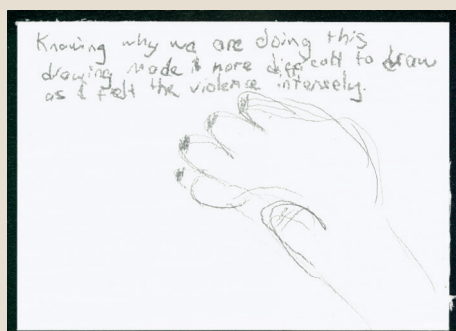 Knowing why we are doing this
drawing made it more difficult to draw
as I felt the violence intensely.